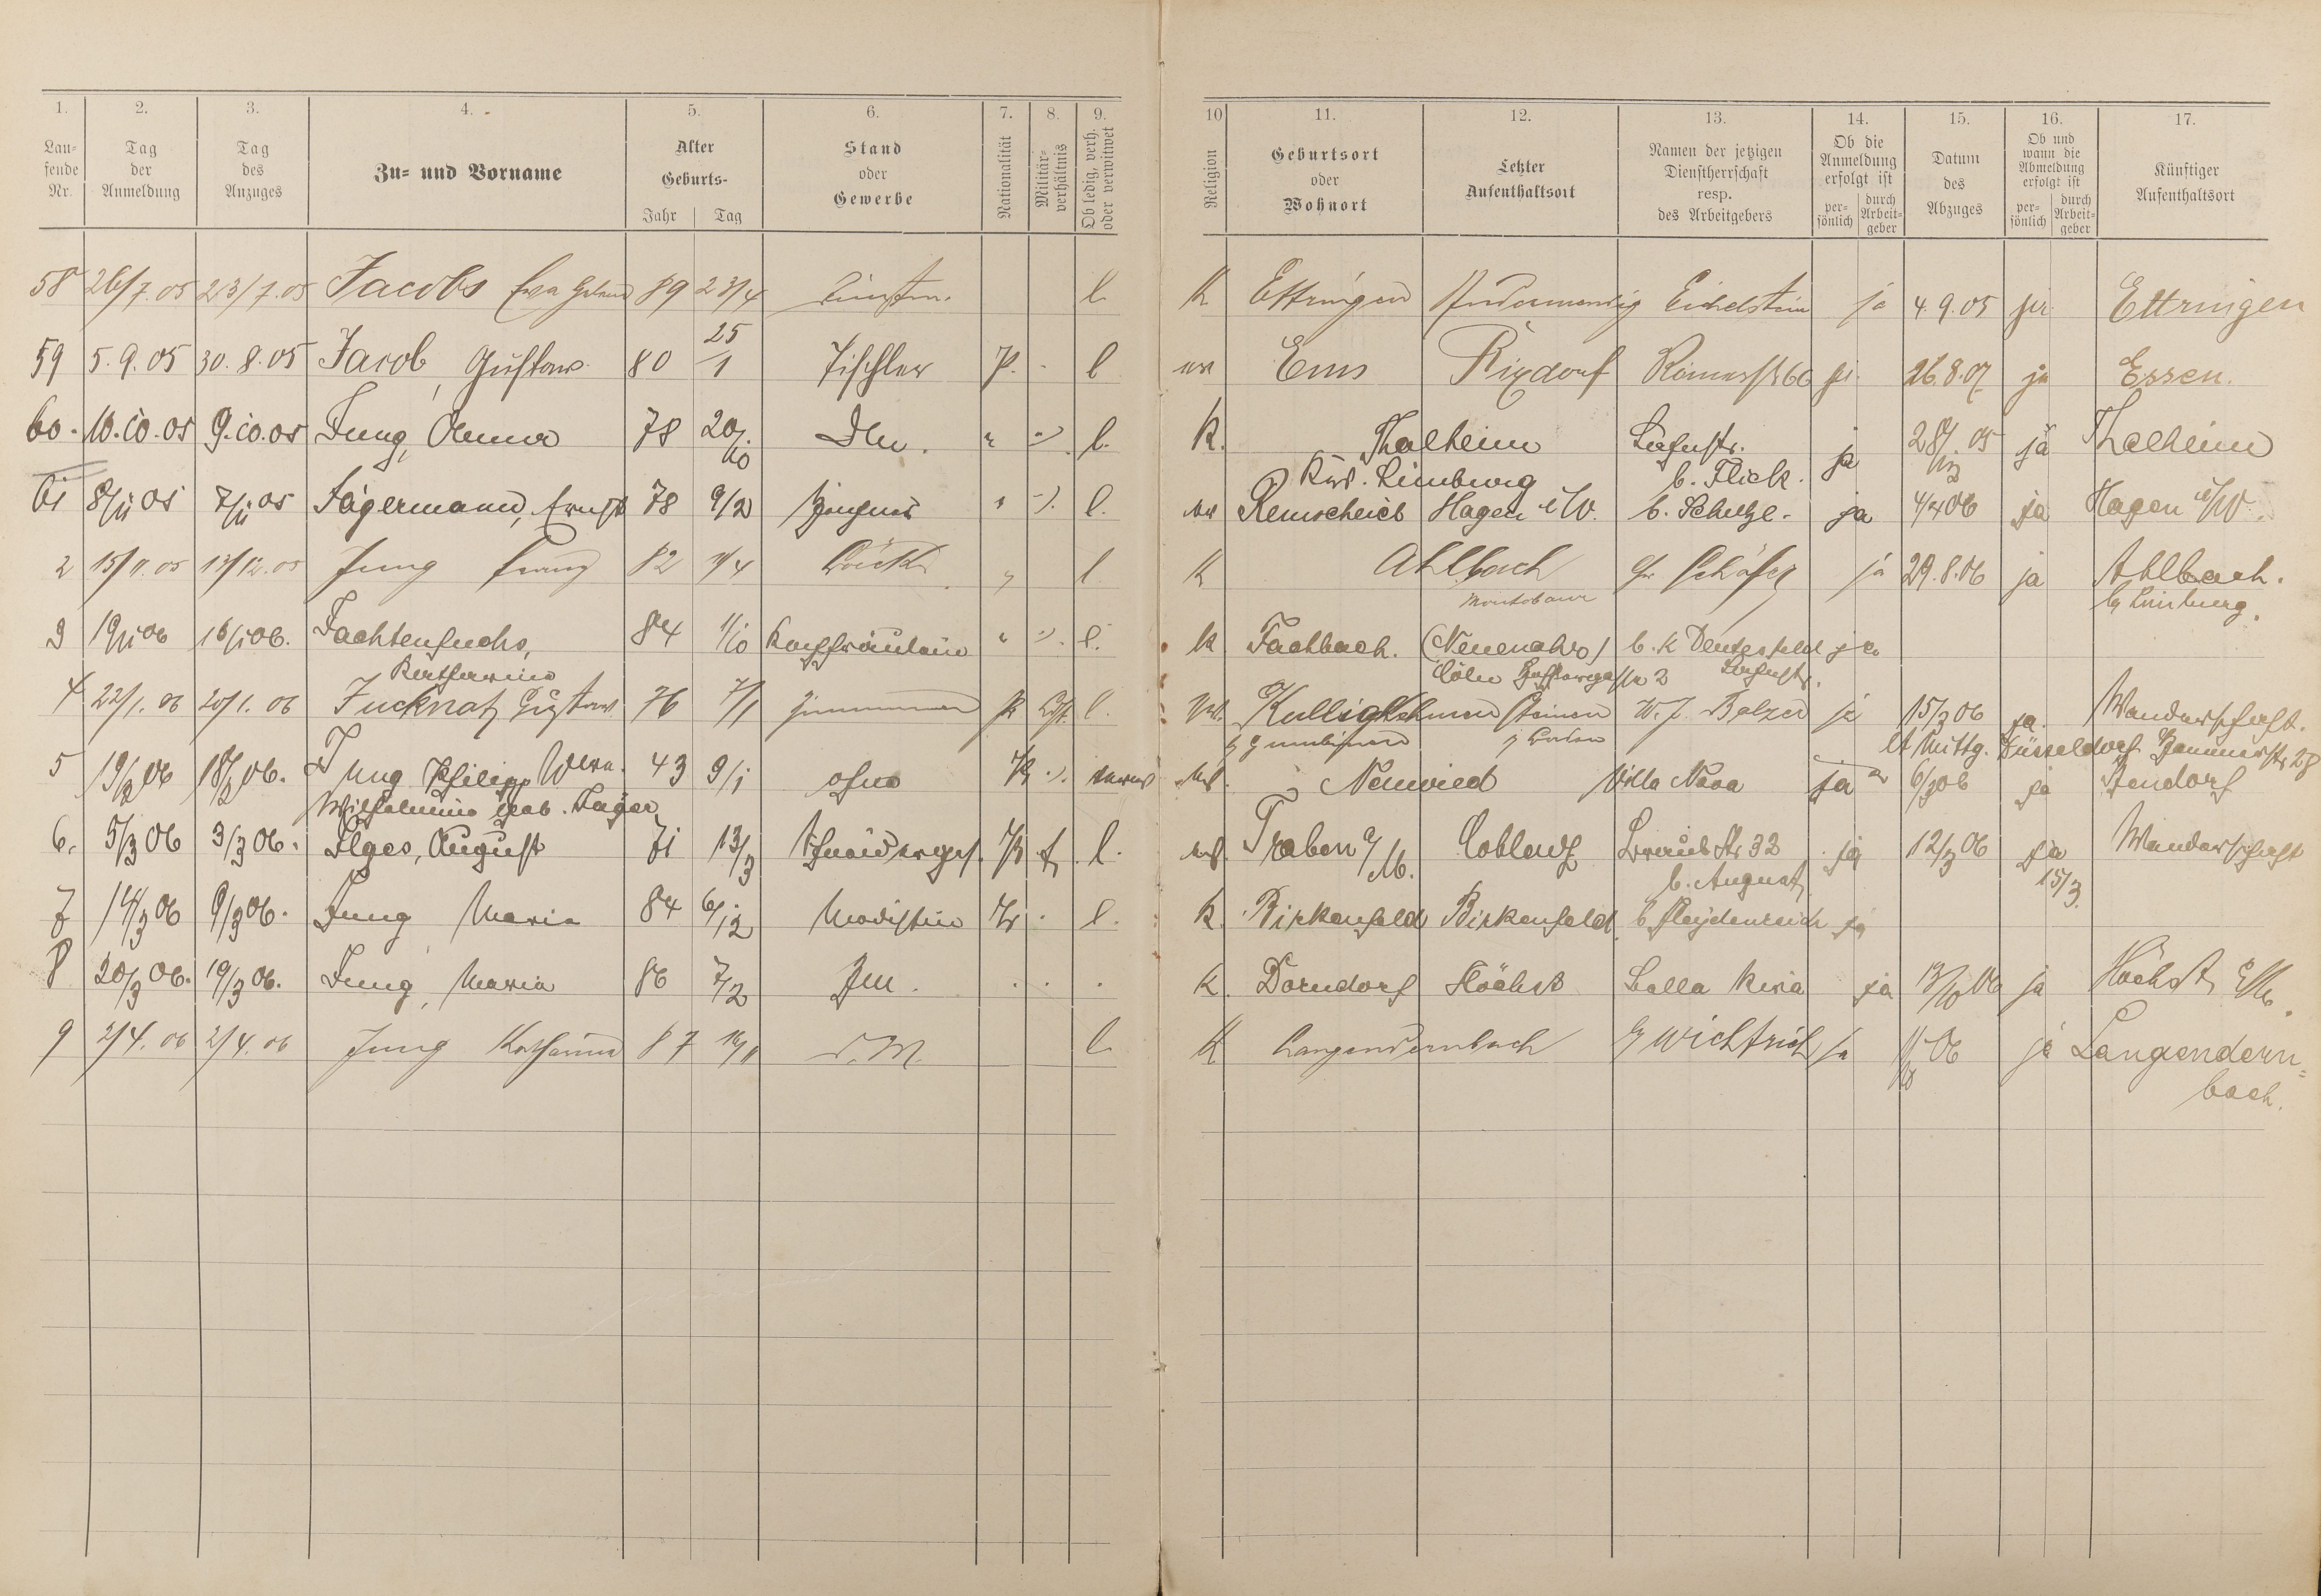 1. 2. 3. 4. 5. 6. 7. 8. 9. 10 11. 12. 13. 14. 15. 16. 17.
Laufende Nr.
Tag der Anmeldung
Tag des Anzuges
Zu- und Vorname
Alter
Geburts-
Jahr Tag
Stand oder Gewerbe
Nationalität
Militär-verhältnis
Ob ledig, verh. oder verwitwet
Religion
Geburtsort oder Wohnort
Letzter Aufenthaltsort
Namen der jetzigen Dienstherrschaft resp. des Arbeitgebers
Ob die Anmeldung erfolgt ist
per-sönlich durch Arbeit-geber
Datum des Abzuges
Ob und wann die Abmeldung erfolgt ist
per-sönlich durch Arbeit-geber
Künftiger Aufenthaltsort
58 26/7.05 23/7.05 Jacobs Eva 89 23/4 l K Ettringen Niedermendig Eichelstein ja 4.9.05 ja Ettringen
59 5.9.05 30.8.05 Jacob, Gustav 80 25/1 Tischler P. l ev Ems Rixdorf Römerstr 60 ja 26.8.07 ja Essen.
60. 10.10.05 9.10.05 Jung, 78 20/10 Dm. " l. K. Thalheim Lahnstr. ja 28/12 05 ja Thalheim
Krs. Limburg b. Flick.
61 8/11 05 7/11 05 Jägermann, Ernst 78 9/2 " l. ev Remscheid Hagen i/W. b. Schulze. ja 4/4 06 ja Hagen i/W.
2 15/11.05 13/12.05 Jung Franz 82 4 " l K Ahlbach Schäfer ja 29.8.06 ja Ahlbach.
Montabaur b/ Limburg.
3 19/1 06 16/1 06. Fachtenfuchs, 84 1/10 " l. K Fachbach. (Neuenahr) b. K ja
Katharina Cöln 2 Lahnstr.
4 22/1.06 20/1.06 Jucknat, Gustav 76 7/1 P l. W. J. Balzer ja 15/3 06 ja. Wanderschaft.
Düsseldorf 28
5 19/2 06 18/2 06. Jung Philipp Wwe. 43 9/1 ohne Neuwied Villa Nova ja 6/3 06 ja Bendorf
Wilhelmine geb. Jäger
6. 5/3 06 3/3 06. Ilges, August 71 13/3 Schneiderges. l. Traben a/M. Coblenz 32 ja 12/3 06 ja Wanderschaft
b. August 15/3
7 14/3 06 9/3 06. Jung Maria 84 6/12 Modistin l. K. Birkenfeld Birkenfeld b ja
8 20/3 06. 19/3 06. Jung, Maria 86 7/2 Dm. K. Dorndorf Höchst Bella Riva ja 13/10 06 ja Höchst a/M.
9 2/4.06 2/4.06 Jung Katharina 87 D.M. l K Langendernbach Wichtrich ja 06 ja Langendern=
bach.